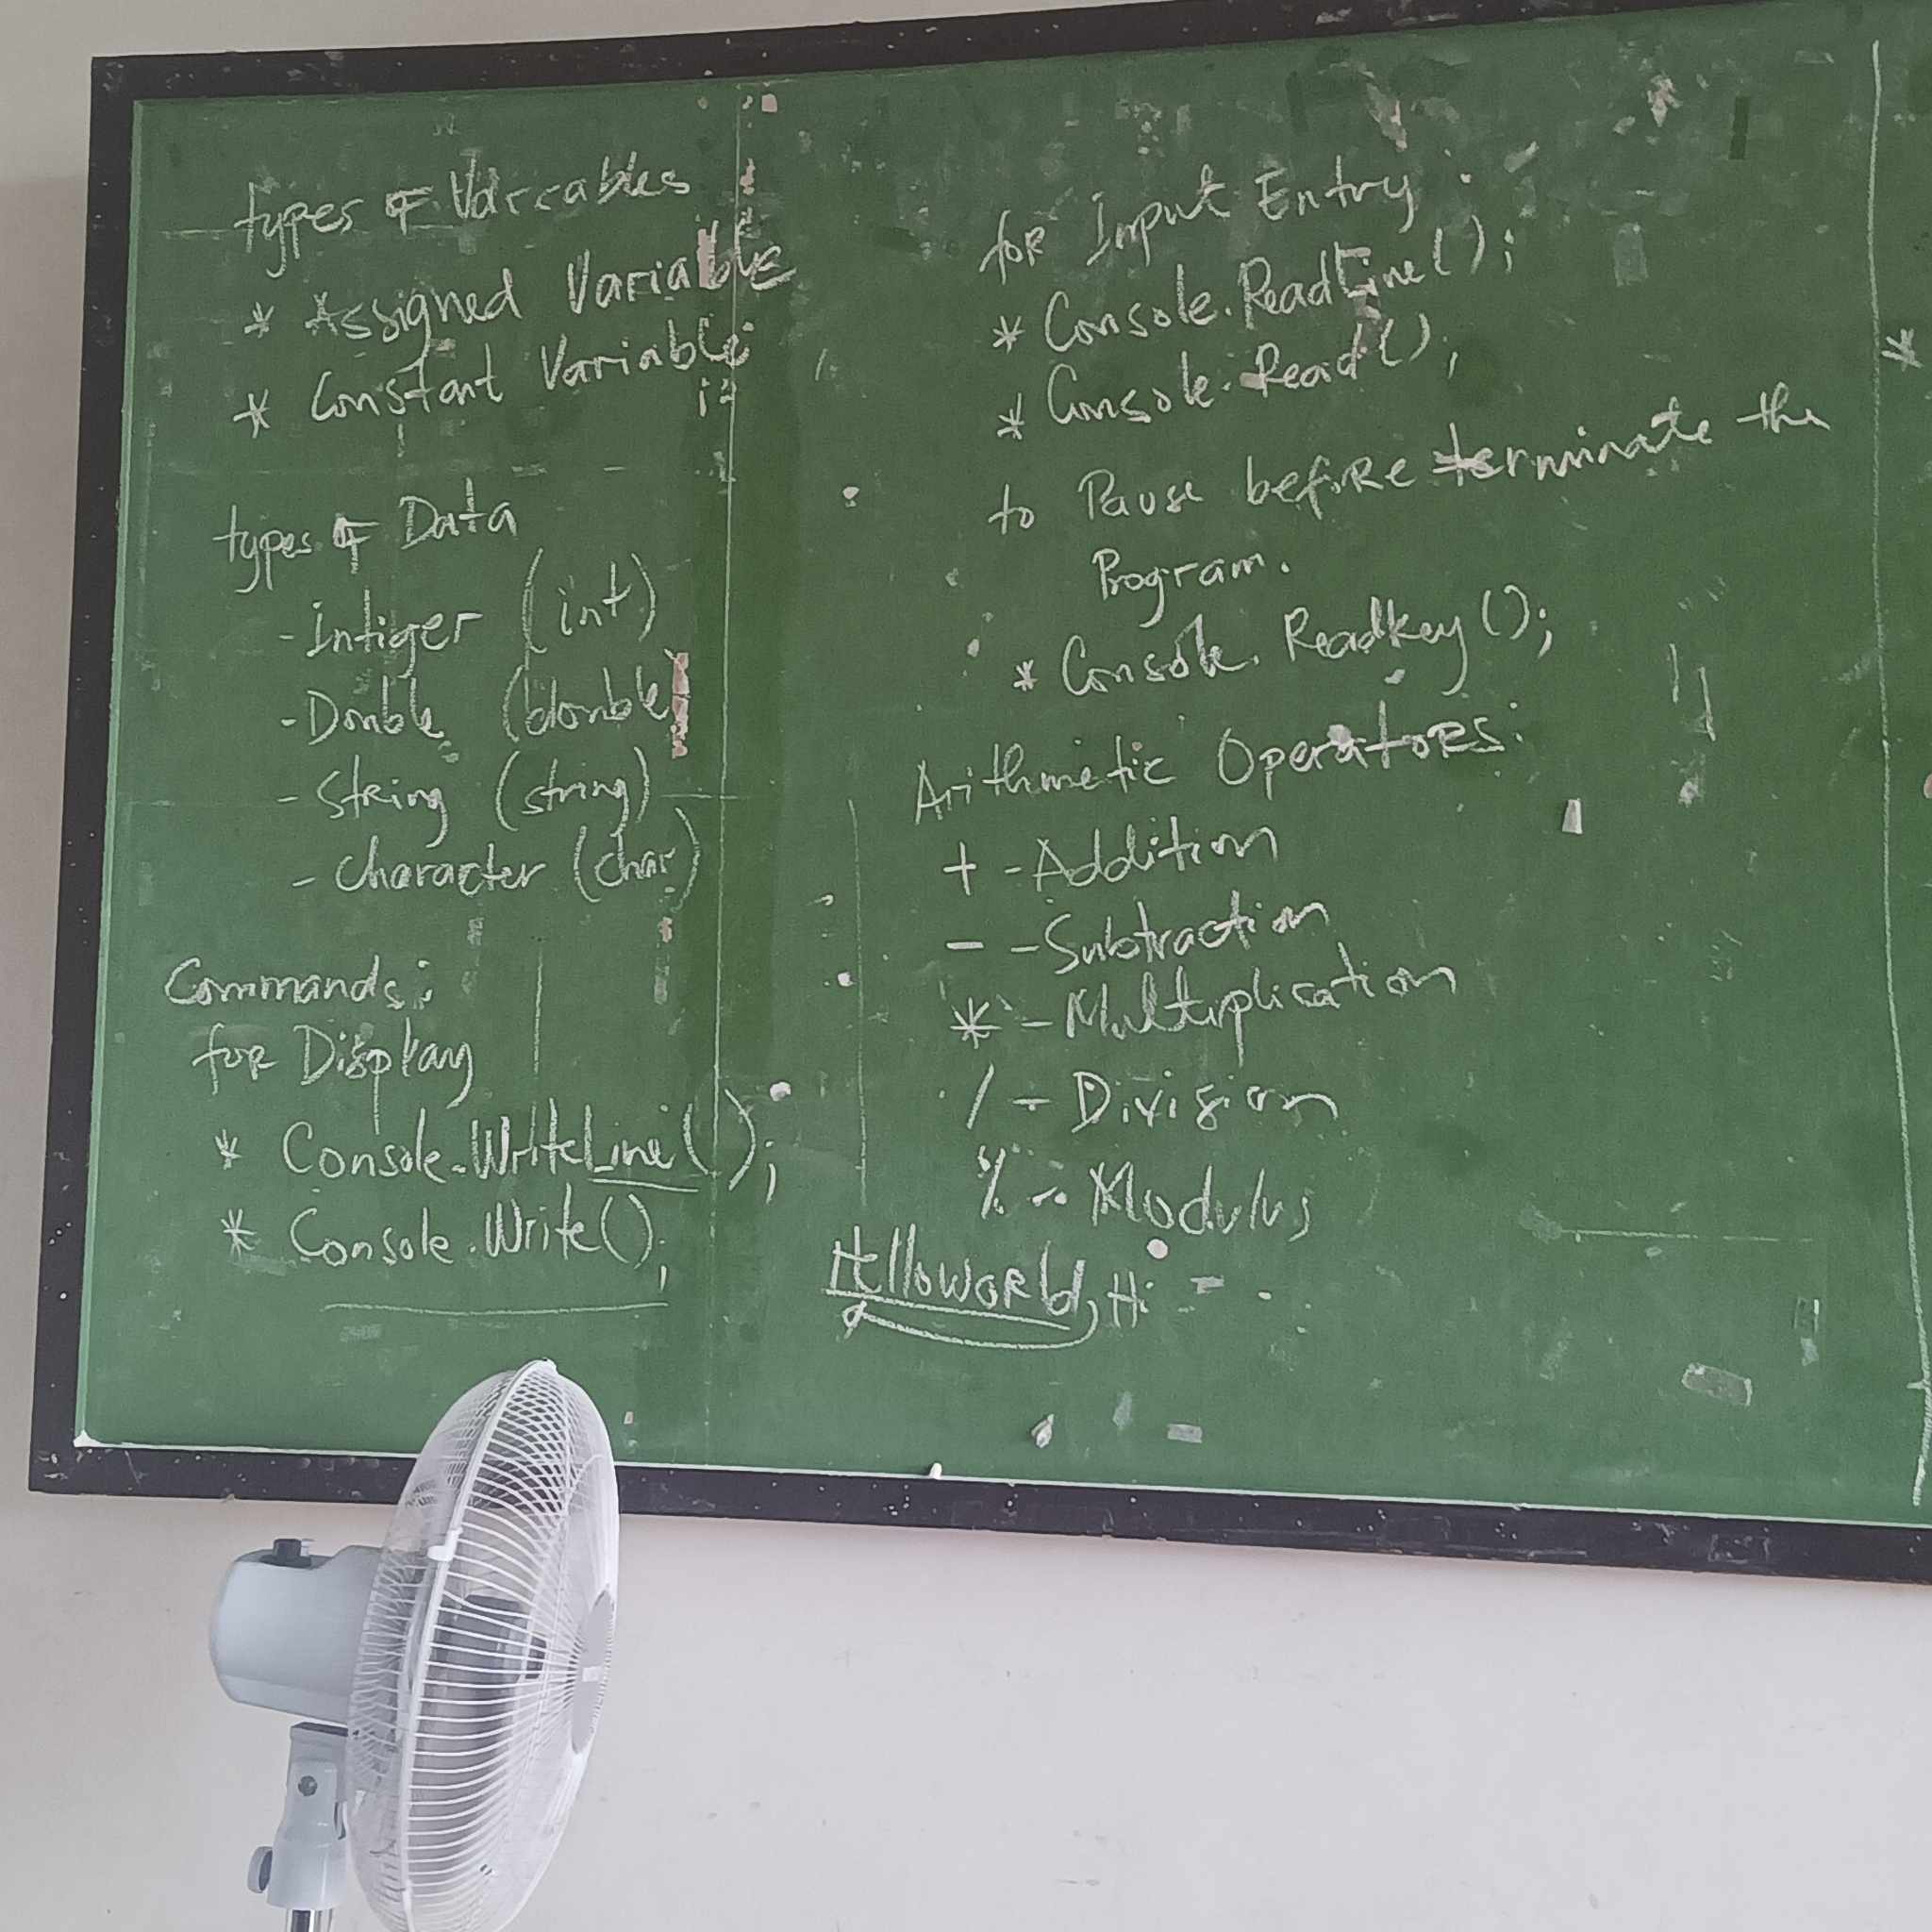 types of Variables
* Assigned Variable
* Constant Variable
types of Data
- Intiger (int)
- Double (double)
- String (string)
- Character (char)
Commands:
for Display
* Console.WriteLine();
* Console.Write();
for Input Entry:
* Console.ReadLine();
* Console.Read();
to Pause before terminate the
Program.
* Console.Readkey();
Arithmetic Operators:
+ - Addition
- - Subtraction
* - Multiplication
/ - Division
% - Modulus
Helloworld, Hi
*